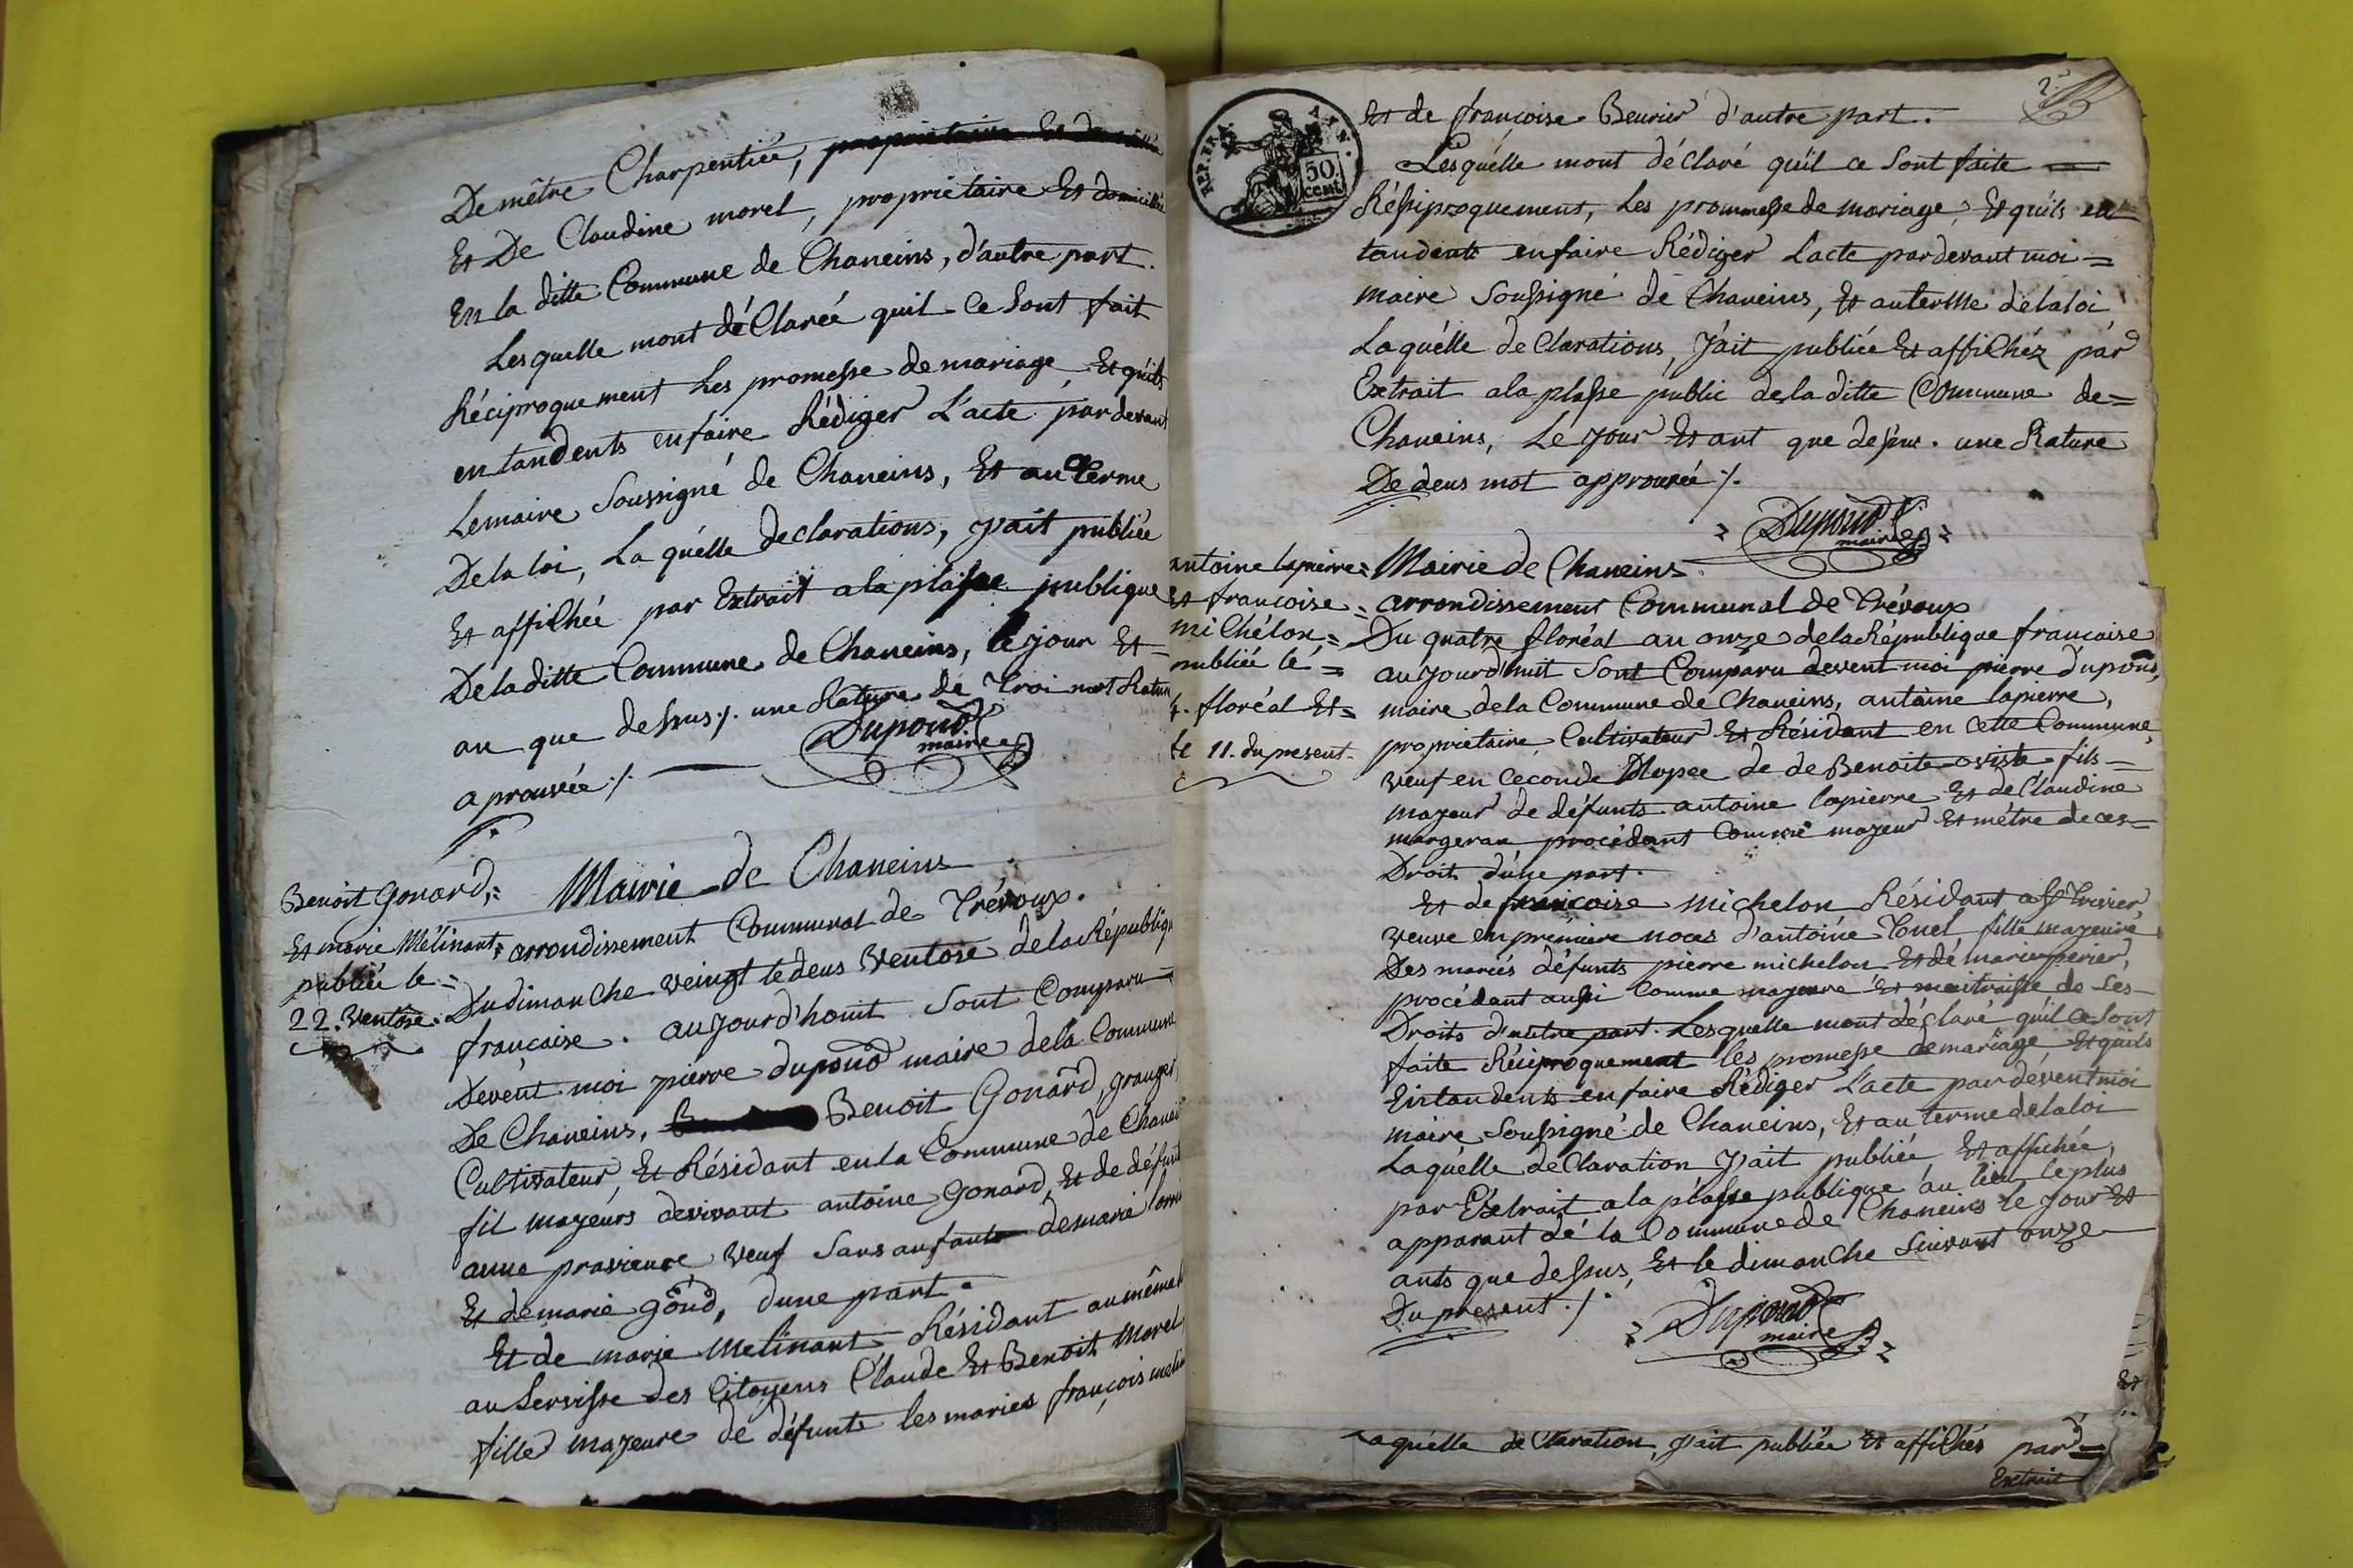 De mêtre Charpentiée, propriétaire Et
Et De Claudine morel, propriétaire Et domicillié
En la ditte Commune de Chaneins, d'autre part.
Les quelle mont dé Clarée quil Ce Sont fait
Réciproquement Les promesse de mariage, Et quils
entandents enfaire Rédiger L'acte par devant
Lemaire Soussigné de Chaneins, Et au Terme
De la loi, La quélle declarations, j'ait publiée
Et affichée par Extrait a la plasse publique
De la ditte Commune de Chaneins, le jour Et
an que dessus ./. une Rature de Troi mot Ratur
aprouvée ./.
Dupond
maire
Benoit Gonard,=
Et marie Mélinant=
publiée le =
22. Ventose.
Mairie de Chaneins
arrondissement Communal de Trévoux.
Du dimanche veingt le deus Ventose de la Républiqu
francaise. aujourd'houit Sont Comparu
Devent moi pierre dupond maire de la Commune
De Chaneins, Benoit Gonard, granger,
Cultivateur, Et Résidant en la Commune de Chanei
fil mayeurs devivant antoine Gonard, Et de défunt
anne veuf Sans anfants de marie
Et de marie gond, dune part.
Et de marie Melinant Résidant au même
au Servisse des Citoyens Claude Et Benoit Morel,
fille mayeure de défunts les mariés françois meli
2.
REP. FRA.
50
cent.
Et de françoise Beurier d'autre part.
Lesquélle mont déclaré quil ce Sont faite =
Réssiproquement, Les prommesse de mariage, Et quils en
tandents enfaire Rédiger Lacte pardevant moi =
maire Soussigné de Chaneins, Et auterme de la loi
Laquélle de Clarations, J'ait publiée Et affichéz par
Extrait a la plasse public de la ditte Commune de =
Chaneins, Le jour Et ant que dessus. une Rature
De deus mot approuvée ./.
Dupond
maire
antoine lapierre=
Et francoise =
michélon, =
publiée le =
4. floréal Et =
le 11. du present.
Mairie de Chaneins
arrondissement Communal de Trévoux
Du quatre floréal an onze de la Républiqué francaise
aujourd'huit Sont Comparu devent moi pierre dupond,
maire de la Commune de Chaneins, antoine lapierre,
propriétaire Cultivateur Et Résidant en cette Commune,
veuf en Ceconde de de Benoite fils =
mayeur de défunts antoine lapierre Et de Claudine
margeran procédant Comme mayeur Et métre de ces =
Droits d'une part.
Et de francoise michelon Résidant a St Trivier
veuve en première noces d'antoine Tonel fille mayeure
Des mariés défunts pierre michelon Et dé marie perier,
procédant aussi Comme mayeure Et maitraisse de Ses
Droits d'autre part. Lesquelle mont déclaré quil ce Sont
faite Réciproquement les promesse de mariage Et quils
Entandents en faire Rédiger L'acte par dévent moi
maire Soussigné de Chaneins, Et au terme de la loi
Laquélle de Claration j'ait publiée Et affichée
par Extrait a la plasse publique au lieu le plus
apparant dé la Commune de Chaneins le Jour Et
ants que dessus, Et le dimanche Suivant onze
Du present ./.
Dupond
maire
Et
Laquélle de Claration, j'ait publiée Et affichés par =
Extrait